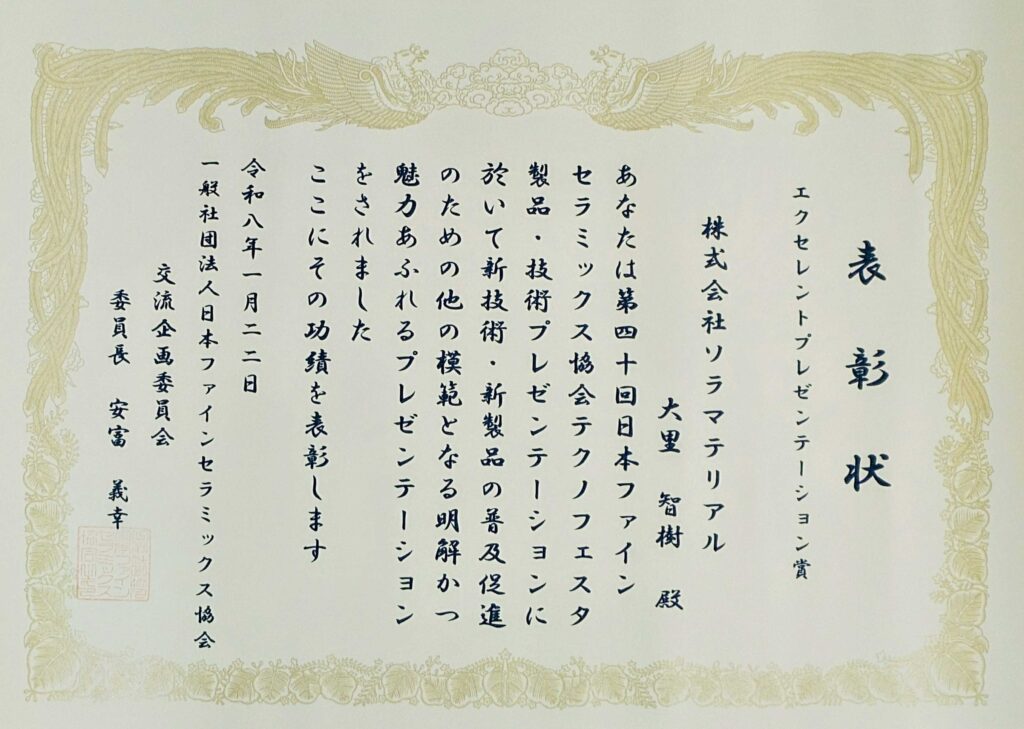 表彰状
エクセレントプレゼンテーション賞
株式会社ソラマテリアル
大里 智樹 殿
あなたは第四十回日本ファイン
セラミックス協会テクノフェスタ
製品・技術プレゼンテーションに
於いて新技術・新製品の普及促進
のための他の模範となる明解かつ
魅力あふれるプレゼンテーション
をされました
ここにその功績を表彰します
令和八年一月二二日
一般社団法人日本ファインセラミックス協会
交流企画委員会
委員長 安富 義幸